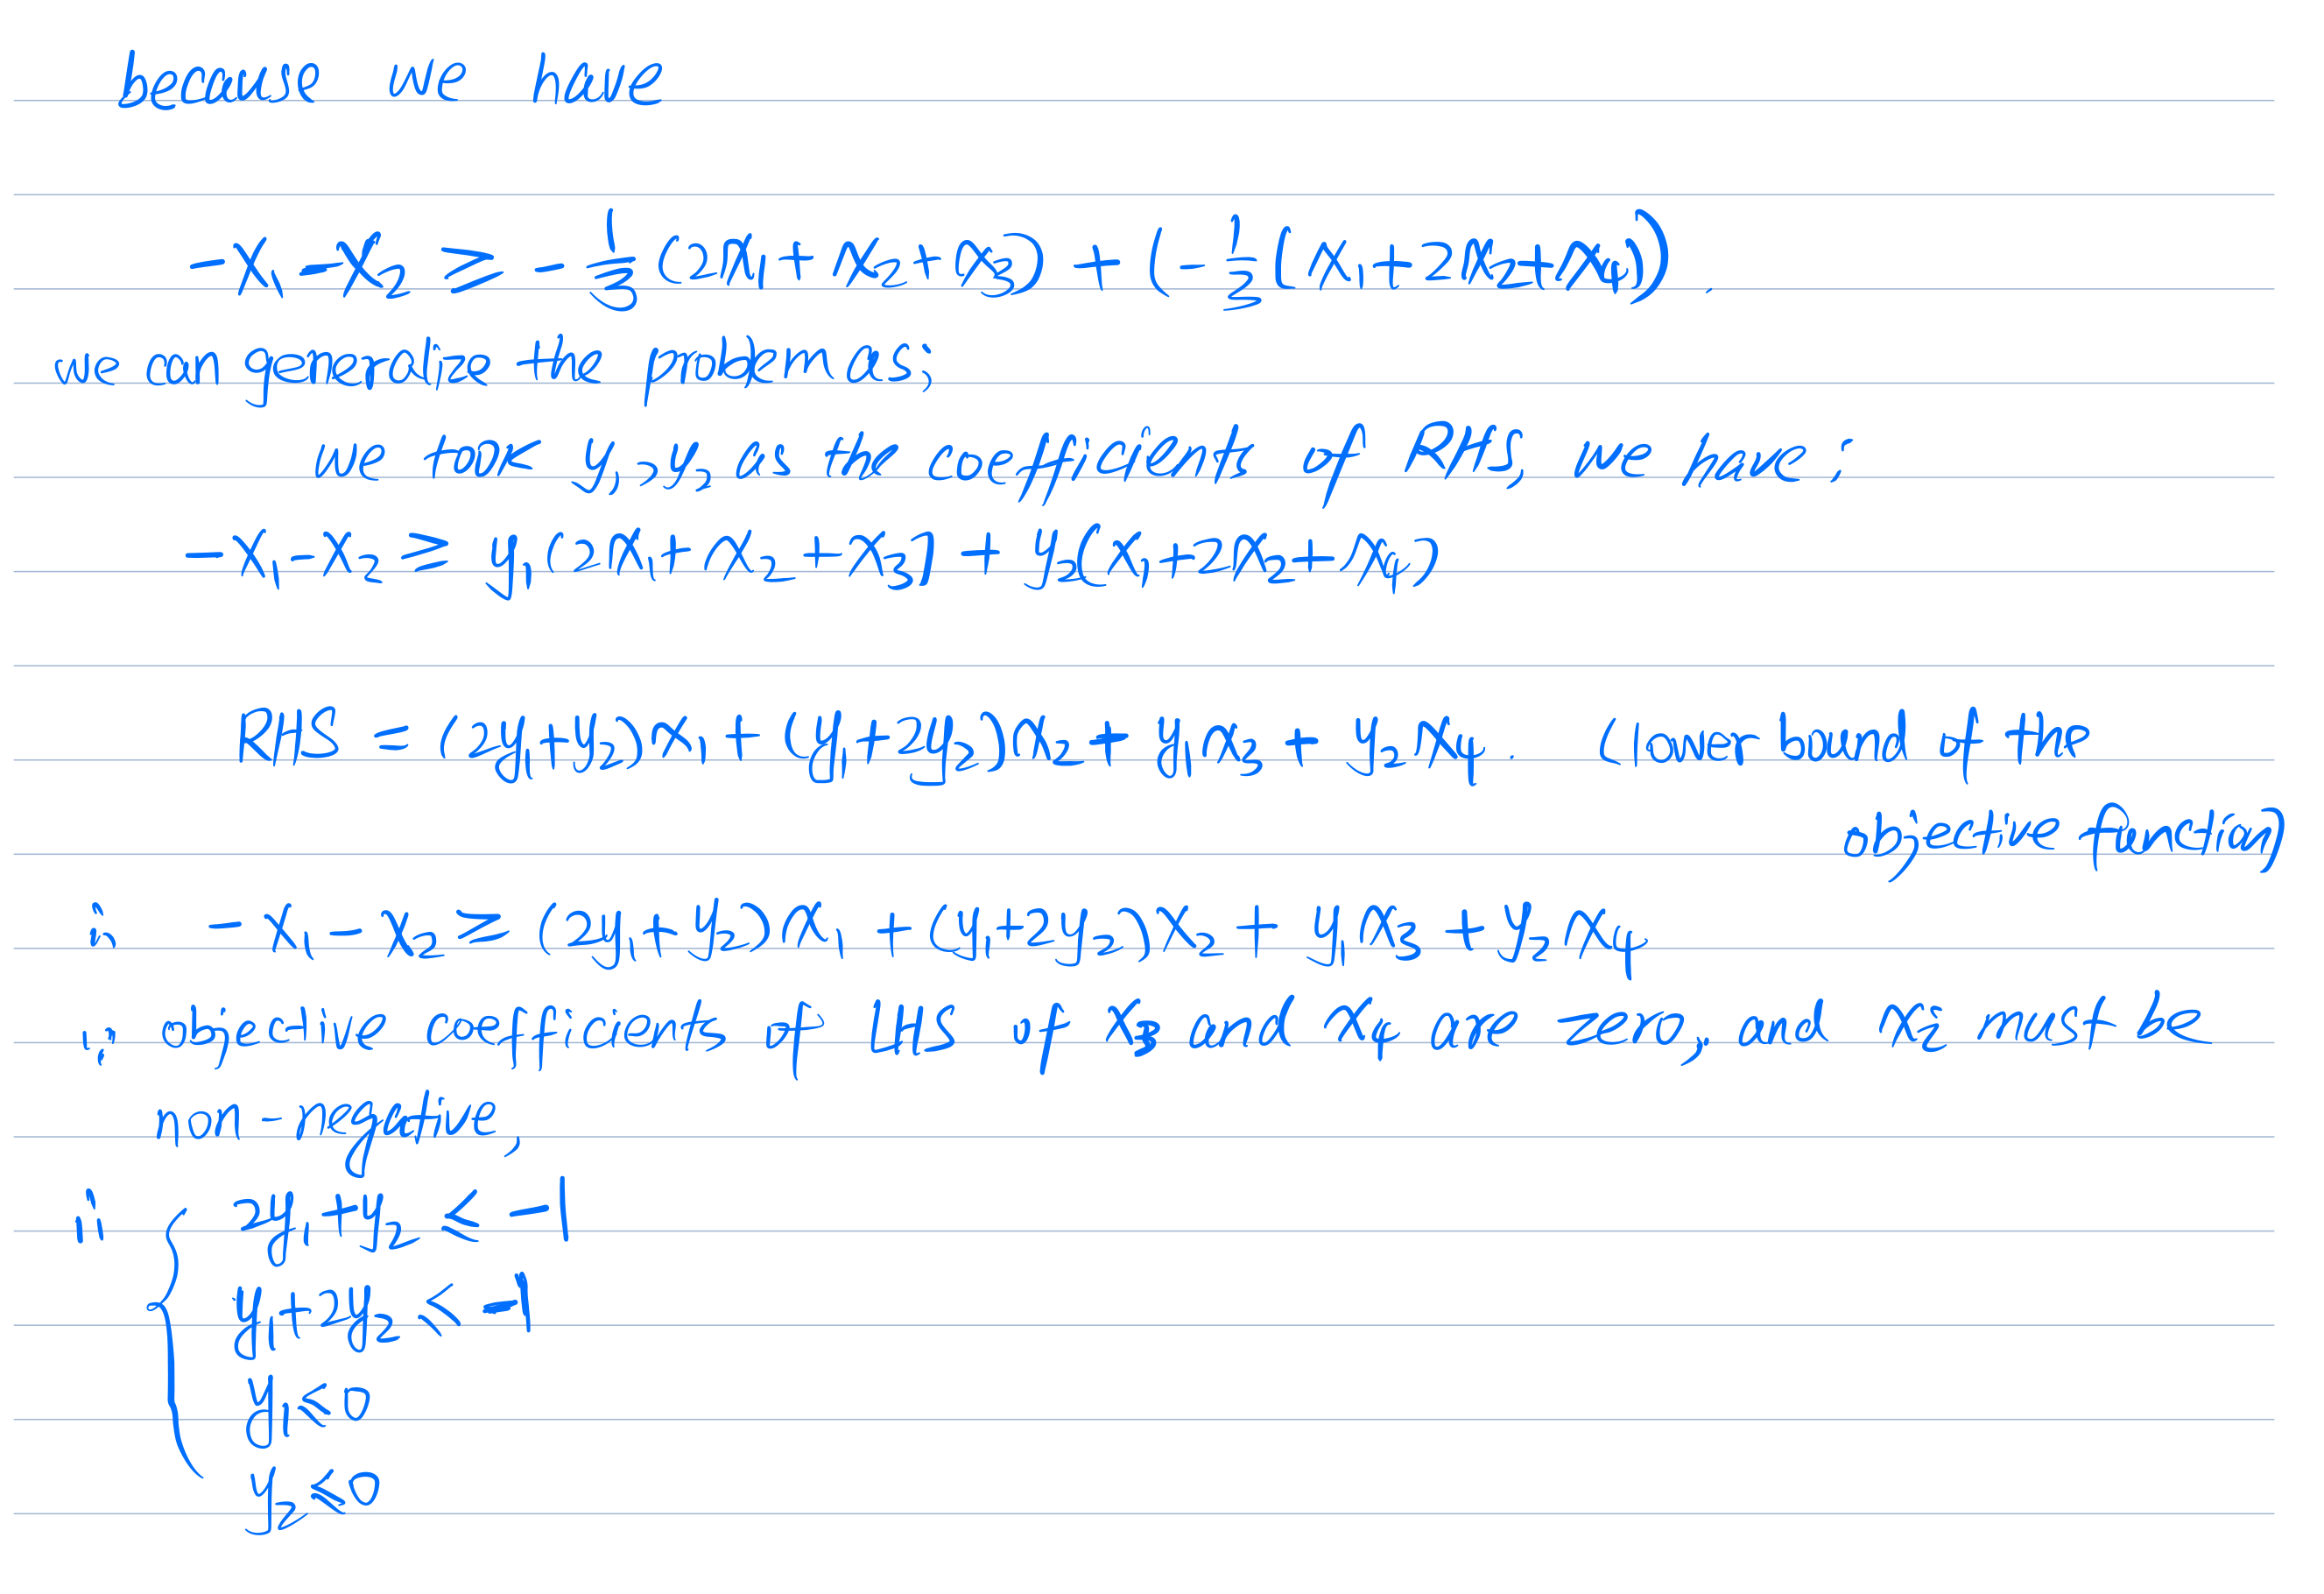 because we have
-x₁ - x₂ ≥ -1/3(2x₁ + x₂ + x₃) + (-1/3(x₁ + 2x₂ + x₄)).
we can generalize the problem as;
we take y₁, y₂ as the coefficient of RHS, we have:
-x₁ - x₂ ≥ y₁(2x₁ + x₂ + x₃) + y₂(x₁ + 2x₂ + x₄)
RHS = (2y₁+y₂)x₁ + (y₁+2y₂)x₂ + y₁x₃ + y₂x₄. (lower bound of the
objective function)
∵ -x₁ - x₂ ≥ (2y₁+y₂)x₁ + (y₁+2y₂)x₂ + y₁x₃ + y₂x₄
∵ objective coefficients of LHS of x₃ and x₄ are zero, and xᵢ must be
non-negative,
∴ { 2y₁+y₂ ≤ -1
y₁+2y₂ ≤ -1
y₁ ≤ 0
y₂ ≤ 0